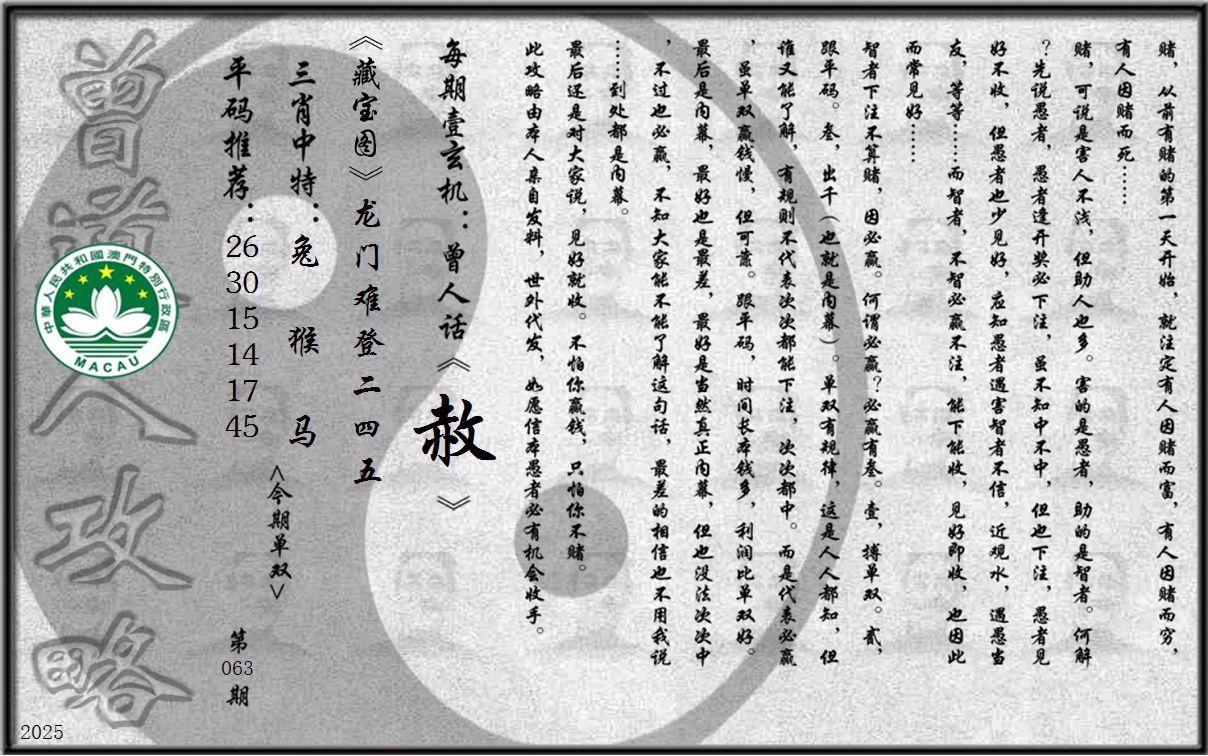 赌，从前有赌的第一天开始，就注定有人因赌而富，有人因赌而穷，
有人因赌而死……
赌，可说是害人不浅，但助人也多。害的是愚者，助的是智者。何解
？先说愚者，愚者逢开奖必下注，虽不知中不中，但也下注，愚者见
好不收，但愚者也少见好，应知愚者遇害智者不信，近观水，遇愚当
友，等等……而智者，不智必赢不注，能下能收，见好即收，也因此
而常见好……
智者下注不算赌，因必赢。何谓必赢？必赢有叁。壹，搏单双。贰，
跟平码。叁，出千（也就是内幕）。单双有规律，这是人人都知，但
谁又能了解，有规则不代表次次都能下注，次次都中。而是代表必赢
，虽单双赢钱慢，但可靠。跟平码，时间长本钱多，利润比单双好。
最后是内幕，最好也是最差，最好是当然真正内幕，但也没法次次中
，不过也必赢，不知大家能不能了解这句话，最差的相信也不用我说
……到处都是内幕。
最后还是对大家说，见好就收。不怕你赢钱，只怕你不赌。
此攻略由本人亲自发料，世外代发，如愿信本愚者必有机会收手。
每期壹玄机：曾人话《赦》
《藏宝图》龙门难登二四五
三肖中特：兔 猴 马
<今期单双>
平码推荐：
26
30
15
14
17
45
第
063
期
曾道人攻略
中華人民共和國澳門特別行政區
MACAU
2025